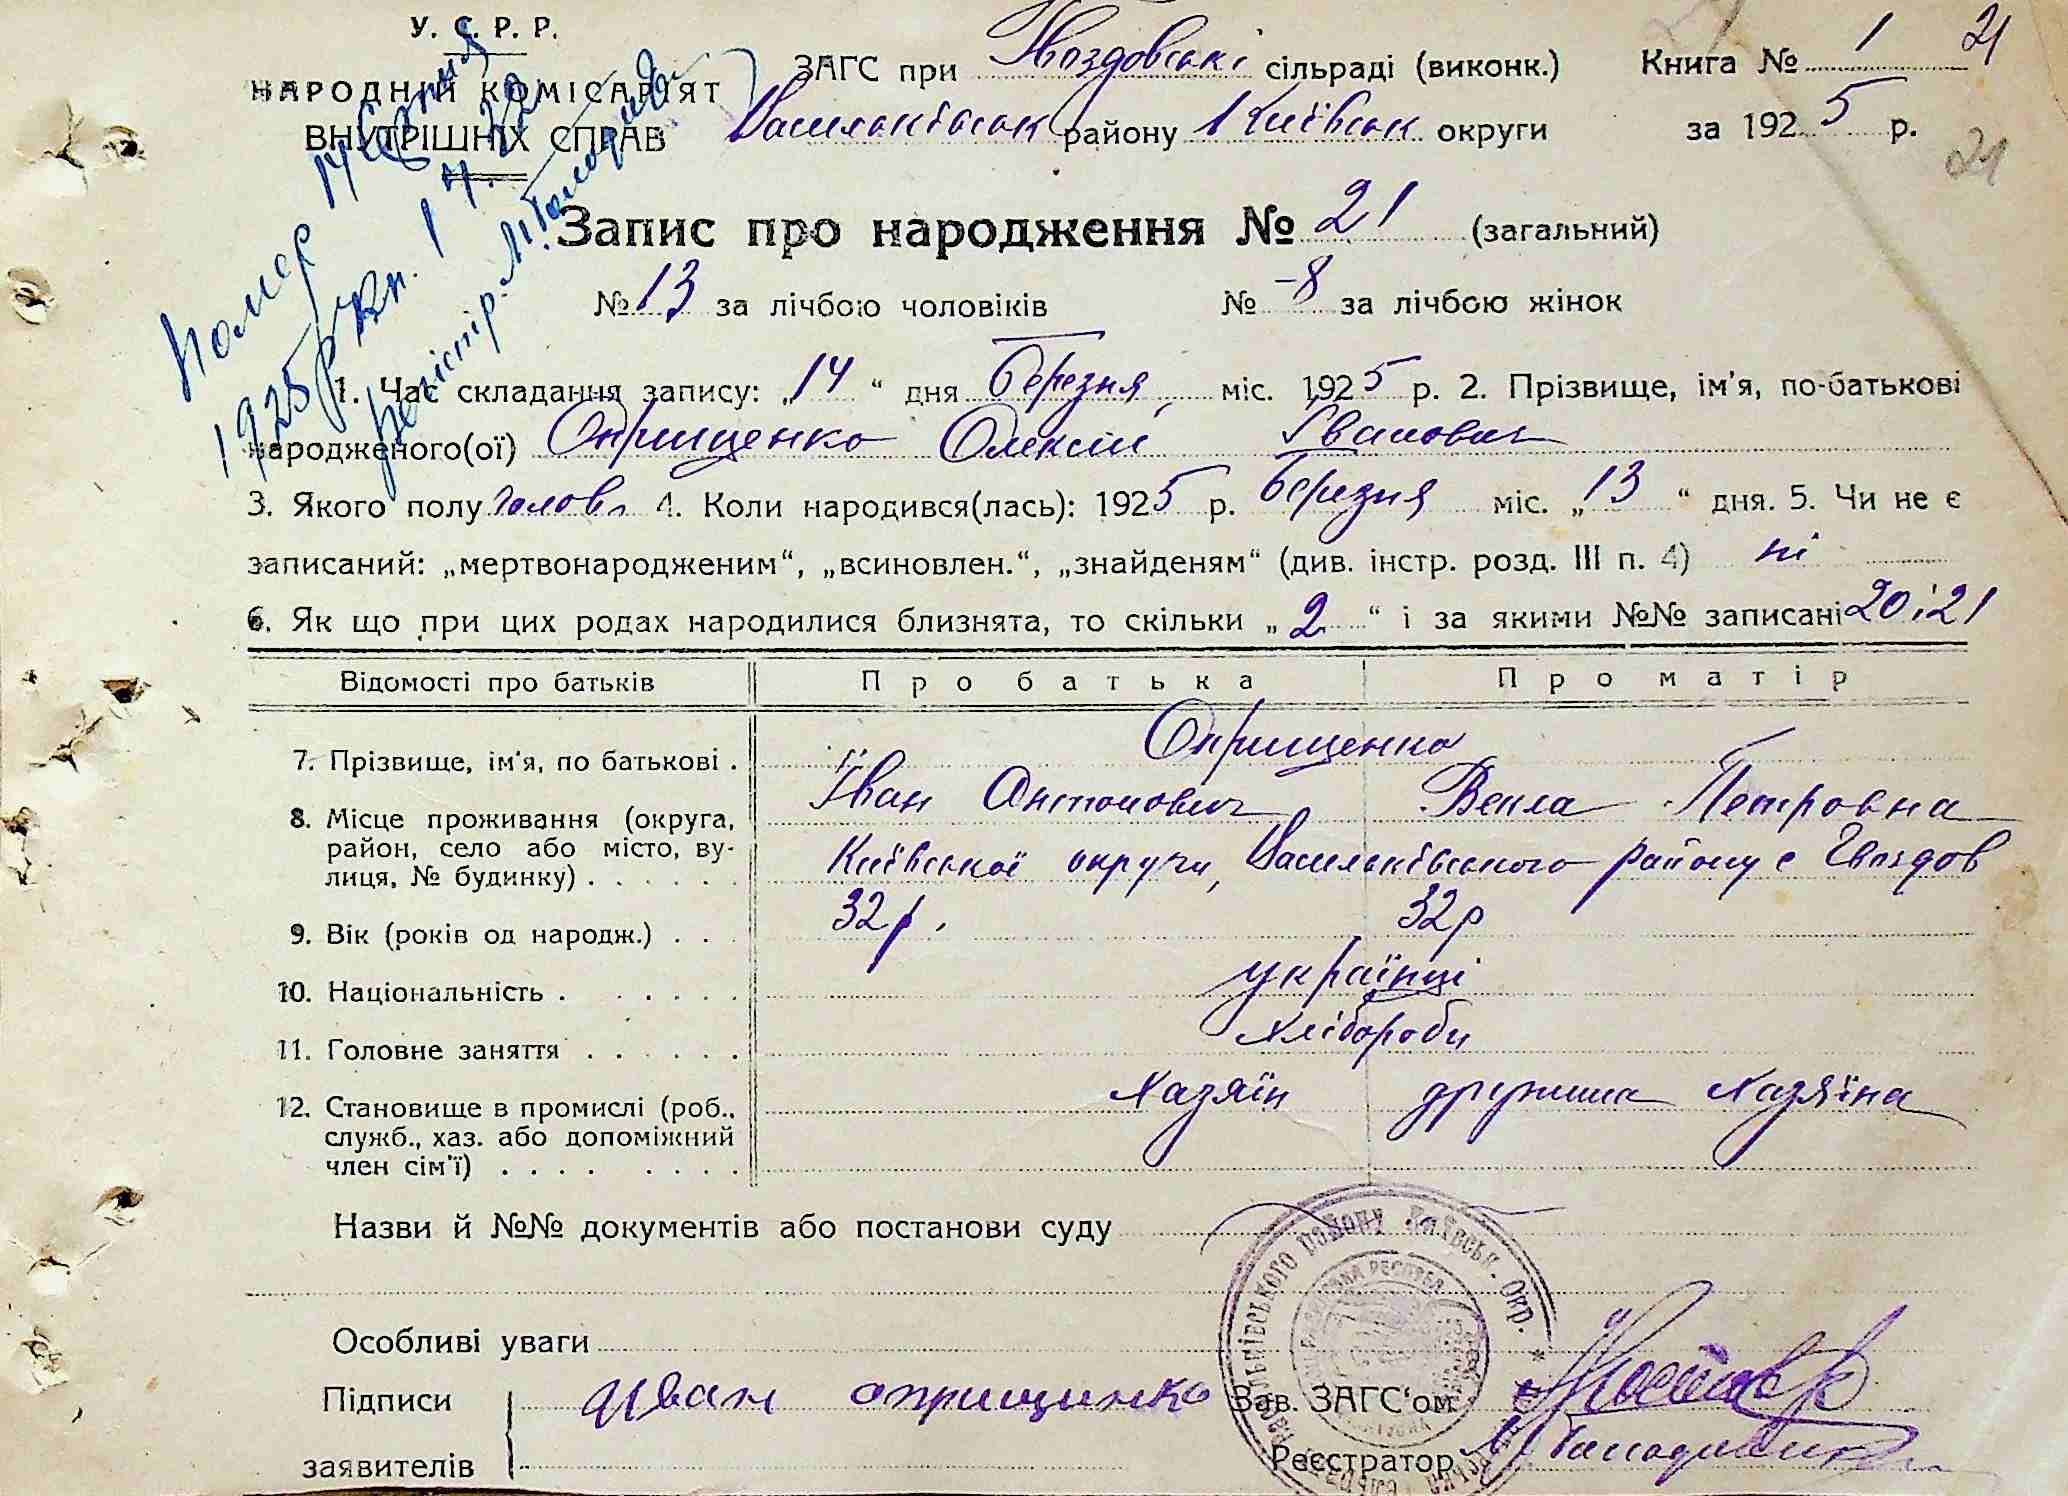 У. С. Р. Р.
НАРОДНІЙ КОМІСАРІЯТ
ВНУТРІШНІХ СПРАВ
ЗАГС при Гвоздовські сільраді (виконк.)
Васильківськ району Київськ округи
Книга № 1 21
за 1925 р.
21
Номер 14
1925 р кн. 1
Запис про народження № 21 (загальний)
№ 13 за лічбою чоловіків № -8 за лічбою жінок
1. Час складання запису: „14“ дня березня міс. 1925 р. 2. Прізвище, ім'я, по-батькові
народженого(ої) Онрищенко Олексій Іванович
3. Якого полу чолов. 4. Коли народився(лась): 1925 р. березня міс. „13“ дня. 5. Чи не є
записаний: „мертвонародженим“, „всиновлен.“, „знайденям“ (див. інстр. розд. III п. 4) ні
6. Як що при цих родах народилися близнята, то скільки „2“ і за якими №№ записані 20 і 21
Відомості про батьків Про батька Про матір
7. Прізвище, ім'я, по батькові . Онрищенко
Іван Антонович Векла Петровна
8. Місце проживання (округа,
район, село або місто, ву-
лиця, № будинку) . . . . . . Київської округи, Васильківського району с Гвоздов
9. Вік (років од народж.) . . . 32р. 32р
10. Національність . . . . . . українці
11. Головне заняття . . . . . . хлібороби
12. Становище в промислі (роб.,
служб., хаз. або допоміжний
член сім'ї) . . . . . . . . Хазяїн дружина Хазяїна
Назви й №№ документів або постанови суду
Особливі уваги
Підписи
заявителів
иван оприщинко
Зав. ЗАГС'ом
Реєстратор
району Київськ. Окр. *